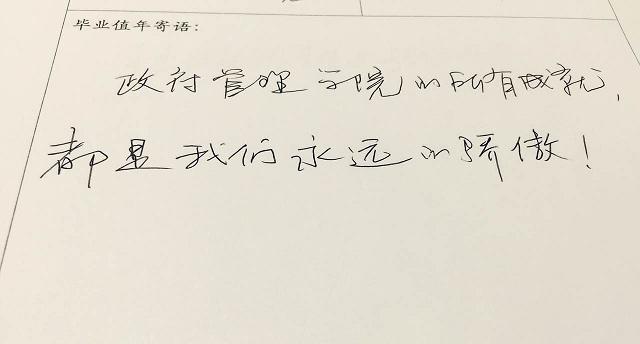 毕业值年寄语:
政府管理学院的所有成就,
都是我们永远的骄傲!